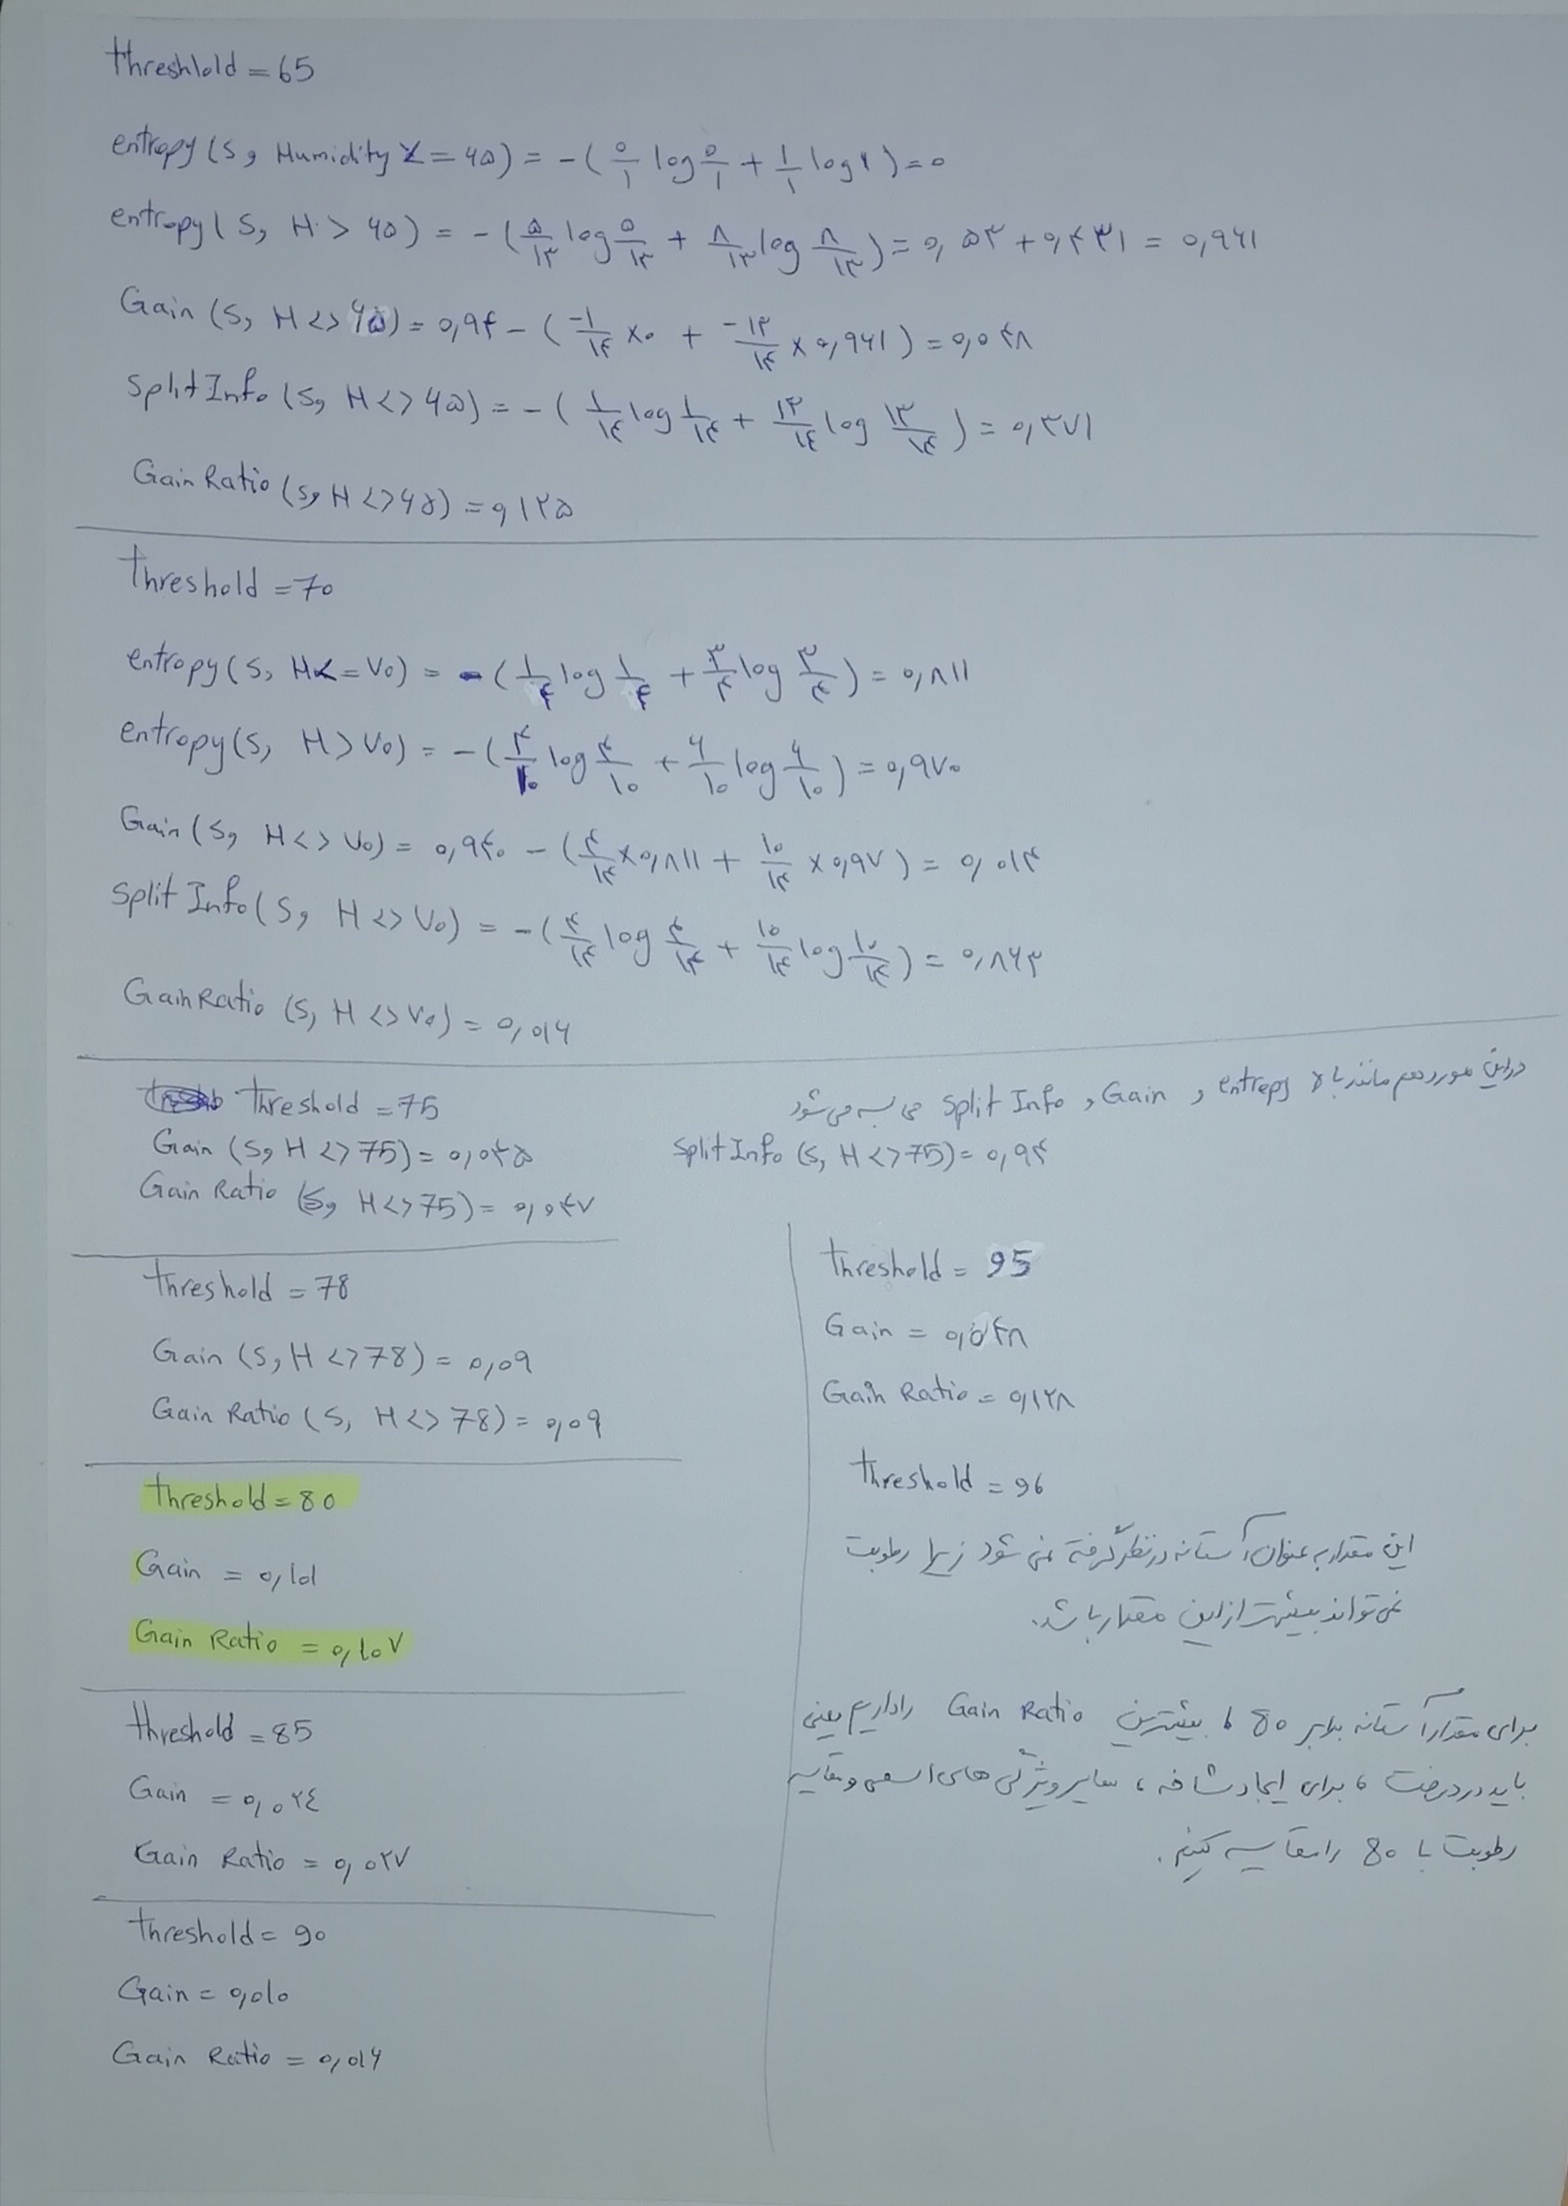 threshlold = 65
entropy (S, Humidity <= ۶۵) = -(۰/۱ log ۰/۱ + ۱/۱ log ۱) = ۰
entropy (S, H > ۶۵) = -(۵/۱۳ log ۵/۱۳ + ۸/۱۳ log ۸/۱۳) = ۰,۵۳ + ۰,۴۳۱ = ۰,۹۶۱
Gain (S, H <> ۶۵) = ۰,۹۴ - (-۱/۱۴ × ۰ + -۱۳/۱۴ × ۰,۹۶۱) = ۰,۰۴۸
Split Info (S, H <> ۶۵) = -(۱/۱۴ log ۱/۱۴ + ۱۳/۱۴ log ۱۳/۱۴) = ۰,۳۷۱
Gain Ratio (S, H <> ۶۵) = ۰,۱۲۵
Threshold = 70
entropy (S, H <= ۷۰) = -(۱/۴ log ۱/۴ + ۳/۴ log ۳/۴) = ۰,۸۱۱
entropy (S, H > ۷۰) = -(۴/۱۰ log ۴/۱۰ + ۶/۱۰ log ۶/۱۰) = ۰,۹۷۰
Gain (S, H <> ۷۰) = ۰,۹۴۰ - (۴/۱۴ × ۰,۸۱۱ + ۱۰/۱۴ × ۰,۹۷) = ۰,۰۱۴
Split Info (S, H <> ۷۰) = -(۴/۱۴ log ۴/۱۴ + ۱۰/۱۴ log ۱۰/۱۴) = ۰,۸۶۳
Gain Ratio (S, H <> ۷۰) = ۰,۰۱۶
Threshold = 75
در این مورد هم مانند بالا entropy و Gain و Split Info محاسبه می شود
Gain (S, H <> 75) = ۰,۰۴۵
Split Info (S, H <> 75) = ۰,۹۴
Gain Ratio (S, H <> 75) = ۰,۰۴۷
threshold = 78
Gain (S, H <> 78) = ۰,۰۹
Gain Ratio (S, H <> 78) = ۰,۰۹
threshold = 80
Gain = ۰,۱۰۱
Gain Ratio = ۰,۱۰۷
threshold = 85
Gain = ۰,۰۲٤
Gain Ratio = ۰,۰۲۷
threshold = 90
Gain = ۰,۰۱۰
Gain Ratio = ۰,۰۱۶
threshold = 95
Gain = ۰,۰۴۸
Gain Ratio = ۰,۱۲۸
threshold = 96
این مقدار به عنوان آستانه در نظر گرفته نمی شود زیرا رطوبت
نمی تواند بیشتر از این مقدار باشد.
برای مقدار آستانه برابر 80 ، بیشترین Gain Ratio را داریم یعنی
باید در درخت ، برای ایجاد شاخه ، سایر ویژگی های اسمی و مقایسه
رطوبت با 80 را مقایسه کنیم.